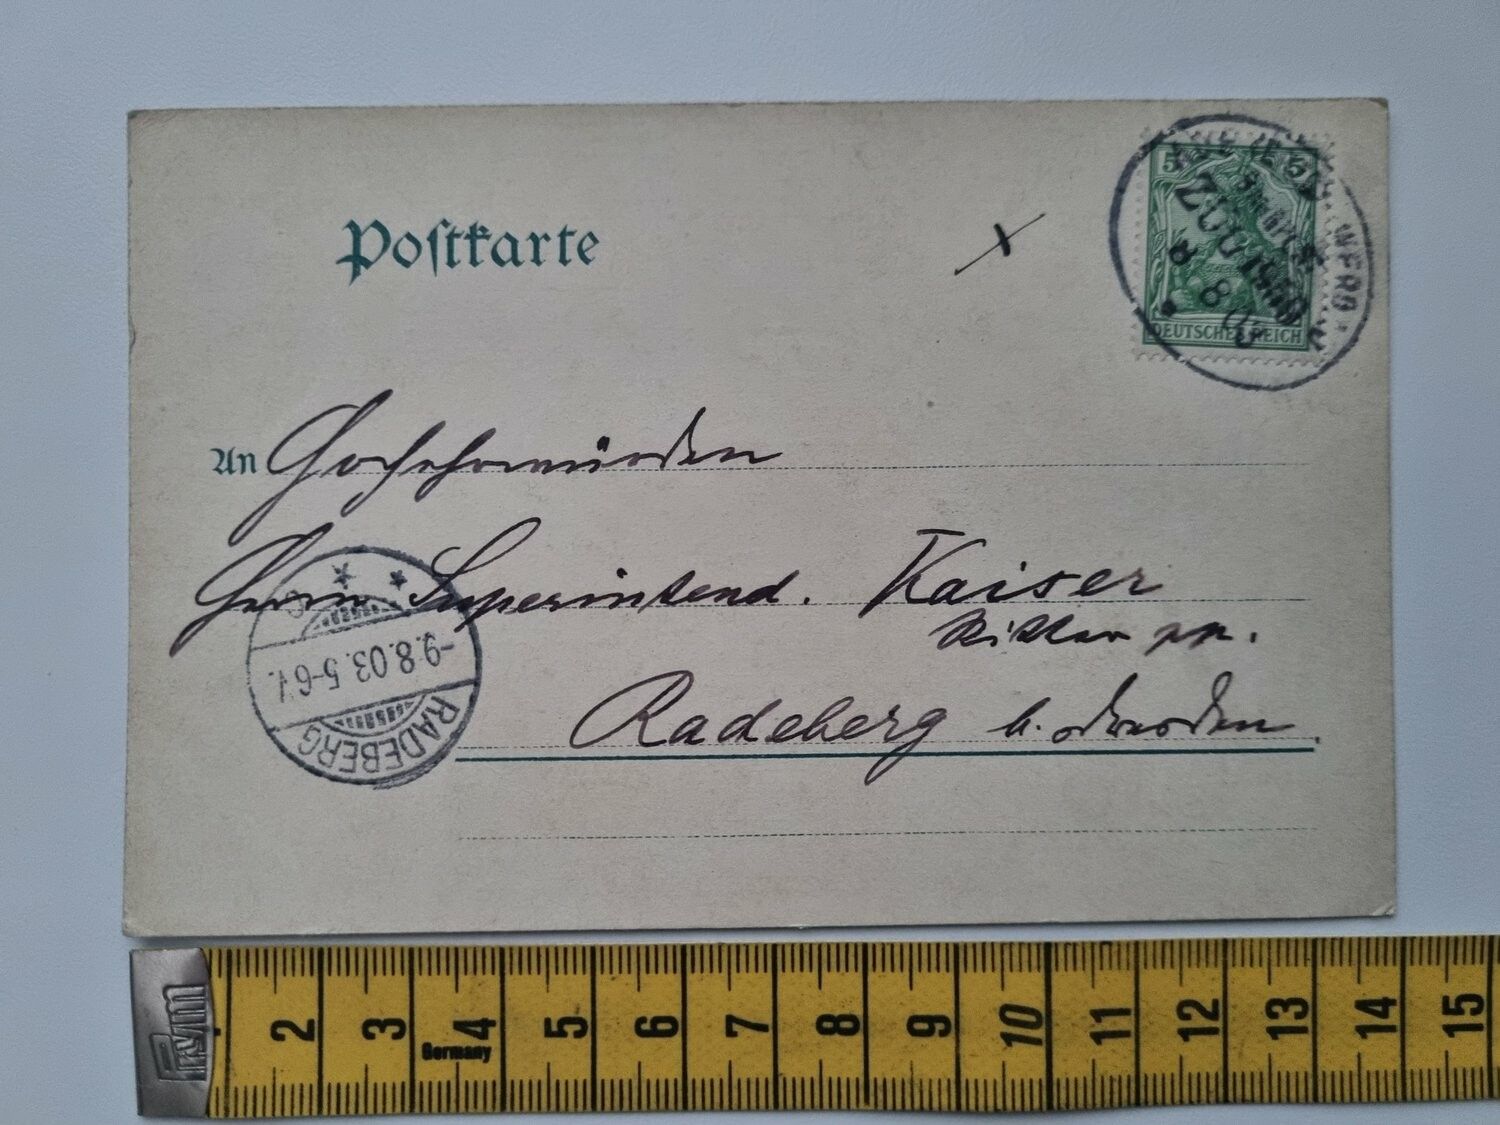 Postkarte
5 5
DEUTSCHES REICH
ZUG 1503
8 8 03
An Hochehrwürden
Herrn Superintend. Kaiser
Ritter pp.
Radeberg b. Dresden.
-9.8.03. 5-6V.
RADEBERG
Prym
2 3 4 5 6 7 8 9 10 11 12 13 14 15
Germany